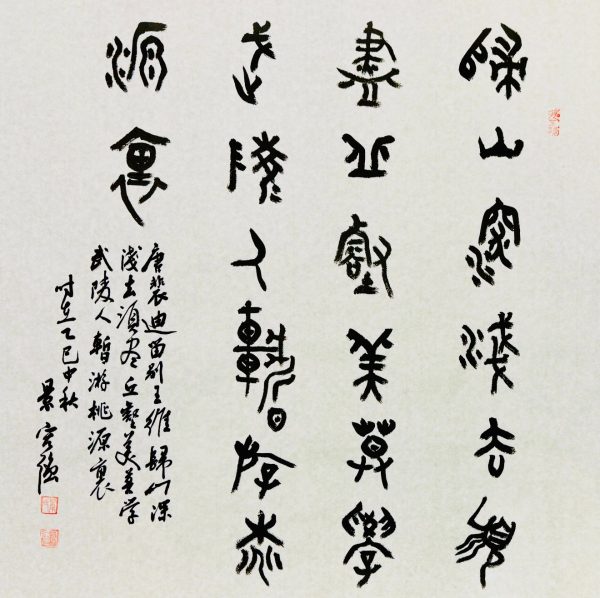 歸山深淺去須
盡丘壑美莫學
武陵人暫游桃
源裏
唐裴迪留别王維歸山深
淺去須尽丘壑美莫学
武陵人暫游桃源裏
时在乙巳中秋
景